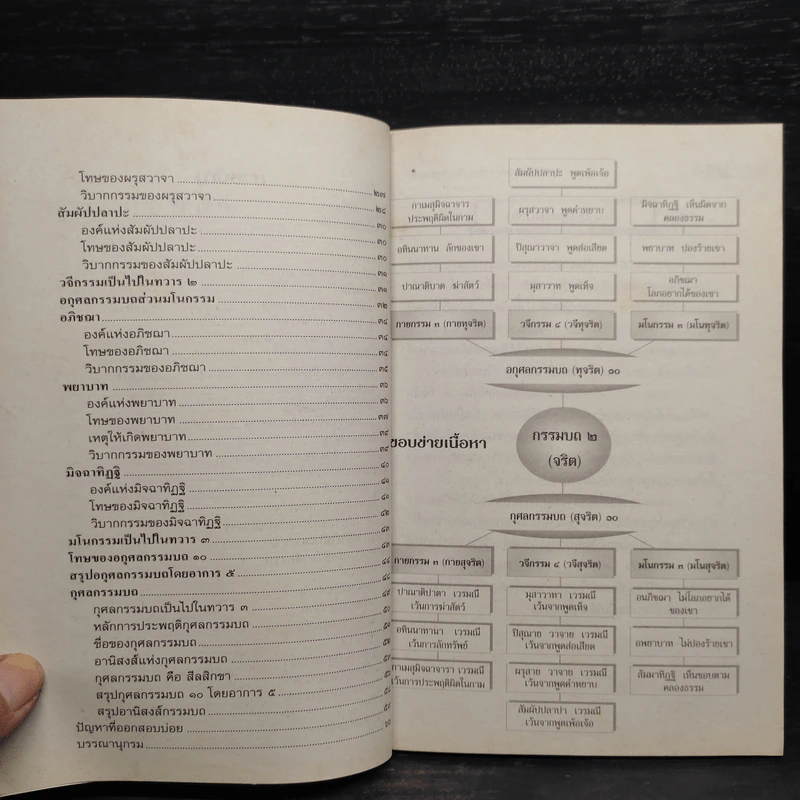 โทษของผรุสวาจา
วิบากกรรมของผรุสวาจา ๒๗
สัมผัปปลาปะ ๒๘
องค์แห่งสัมผัปปลาปะ ๓๐
โทษของสัมผัปปลาปะ ๓๐
วิบากกรรมของสัมผัปปลาปะ ๓๐
วจีกรรมเป็นไปในทวาร ๒ ๓๑
อกุศลกรรมบถส่วนมโนกรรม ๓๑
อภิชฌา ๓๒
องค์แห่งอภิชฌา ๓๔
โทษของอภิชฌา ๓๔
วิบากกรรมของอภิชฌา ๓๔
พยาบาท ๓๕
องค์แห่งพยาบาท ๓๖
โทษของพยาบาท ๓๖
เหตุให้เกิดพยาบาท ๓๗
วิบากกรรมของพยาบาท ๓๙
มิจฉาทิฏฐิ ๓๙
องค์แห่งมิจฉาทิฏฐิ ๔๐
โทษของมิจฉาทิฏฐิ ๔๑
วิบากกรรมของมิจฉาทิฏฐิ ๔๑
มโนกรรมเป็นไปในทวาร ๓ ๔๒
โทษของอกุศลกรรมบถ ๑๐ ๔๓
สรุปอกุศลกรรมบถโดยอาการ ๕ ๔๓
กุศลกรรมบถ ๔๔
กุศลกรรมบถเป็นไปในทวาร ๓
หลักการประพฤติกุศลกรรมบถ
ชื่อของกุศลกรรมบถ
อานิสงส์แห่งกุศลกรรมบถ
กุศลกรรมบถ คือ สีลสิกขา
สรุปกุศลกรรมบถ ๑๐ โดยอาการ ๕
สรุปอานิสงส์กรรมบถ
ปัญหาที่ออกสอบบ่อย
บรรณานุกรม
สัมผัปปลาปะ พูดเพ้อเจ้อ
กาเมสุมิจฉาจาร
ประพฤติผิดในกาม
ผรุสวาจา พูดคำหยาบ
มิจฉาทิฏฐิ เห็นผิดจาก
คลองธรรม
อทินนาทาน ลักของเขา
ปิสุณาวาจา พูดส่อเสียด
พยาบาท ปองร้ายเขา
ปาณาติบาต ฆ่าสัตว์
มุสาวาท พูดเท็จ
อภิชฌา
โลภอยากได้ของเขา
กายกรรม ๓ (กายทุจริต)
วจีกรรม ๔ (วจีทุจริต)
มโนกรรม ๓ (มโนทุจริต)
อกุศลกรรมบถ (ทุจริต) ๑๐
ขอบข่ายเนื้อหา
กรรมบถ ๒
(จริต)
กุศลกรรมบถ (สุจริต) ๑๐
กายกรรม ๓ (กายสุจริต)
วจีกรรม ๔ (วจีสุจริต)
มโนกรรม ๓ (มโนสุจริต)
ปาณาติปาตา เวรมณี
เว้นการฆ่าสัตว์
มุสาวาทา เวรมณี
เว้นจากพูดเท็จ
อนภิชฌา ไม่โลภอยากได้
ของเขา
อทินนาทานา เวรมณี
เว้นการลักทรัพย์
ปิสุณาย วาจาย เวรมณี
เว้นจากพูดส่อเสียด
อพยาบาท ไม่ปองร้ายเขา
กาเมสุมิจฉาจารา เวรมณี
เว้นการประพฤติผิดในกาม
ผรุสาย วาจาย เวรมณี
เว้นจากพูดคำหยาบ
สัมมาทิฏฐิ เห็นชอบตาม
คลองธรรม
สัมผัปปลาปา เวรมณี
เว้นจากพูดเพ้อเจ้อ